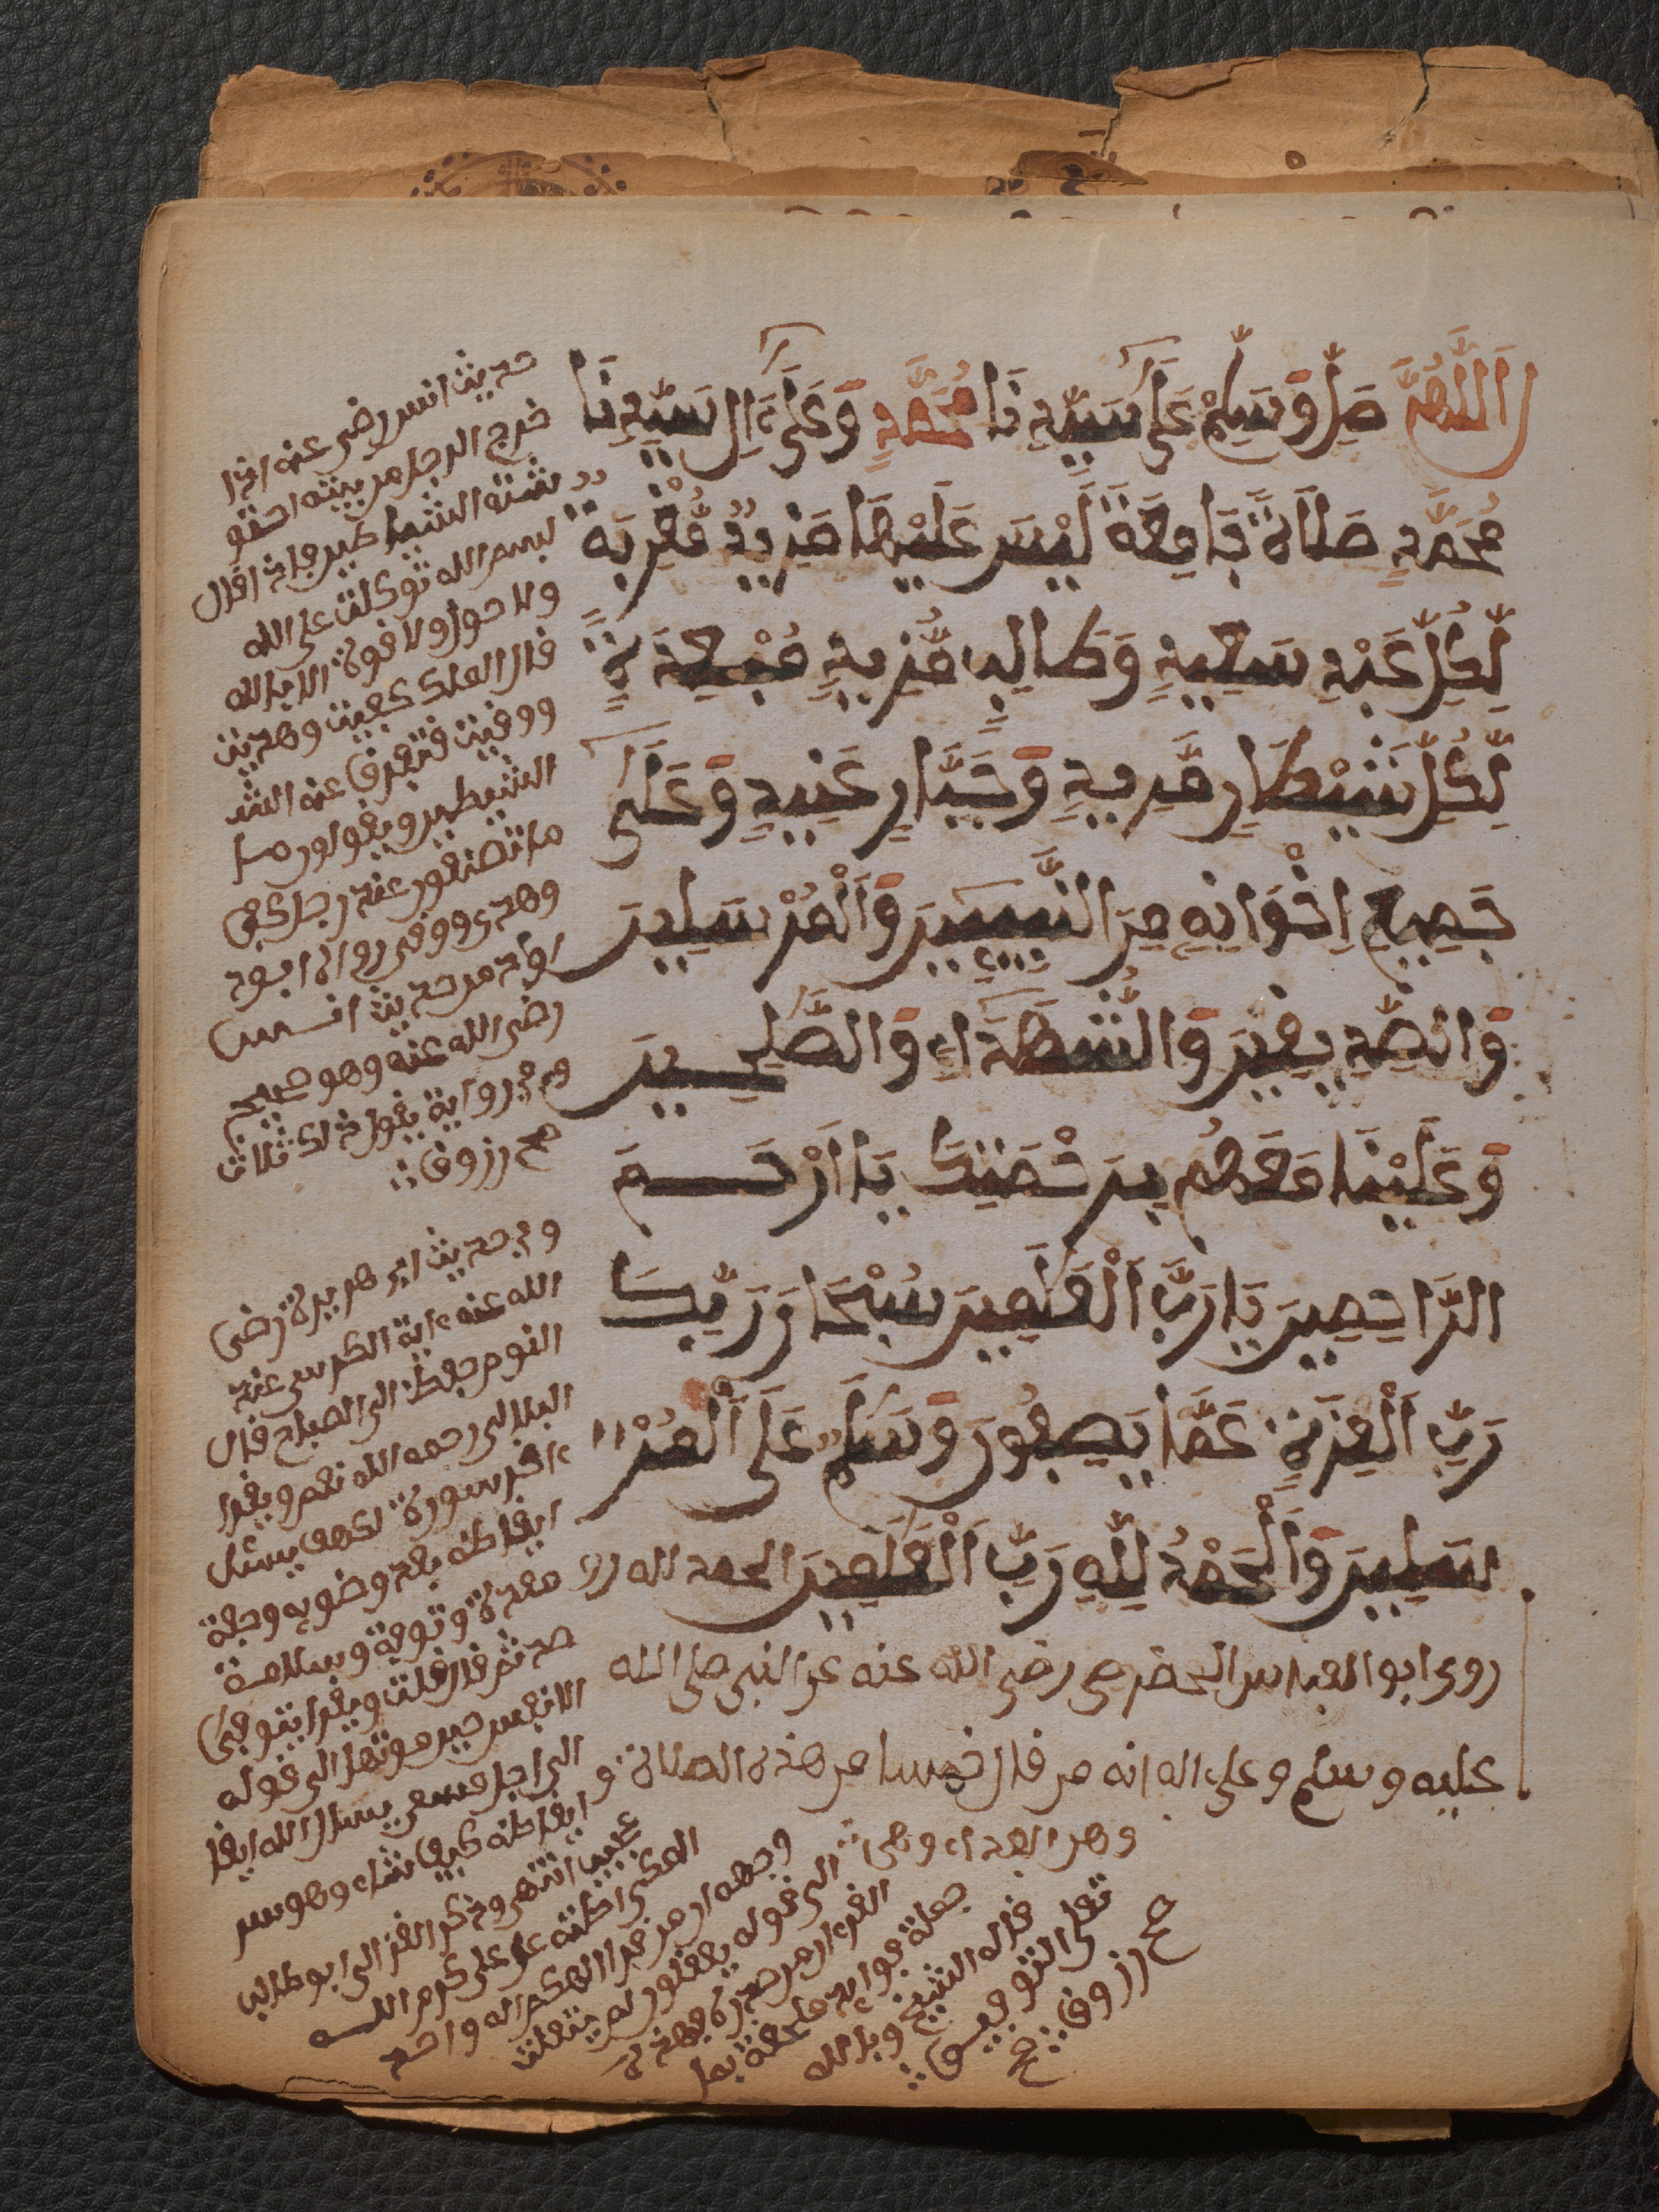 اَللَّهُمَّ صَلِّ وَسَلِّمْ عَلَىٰ سَيِّدِنَا مُحَمَّدٍ وَعَلَىٰ ءَالِ سَيِّدِنَا
مُحَمَّدٍ صَلَاةً جَامِعَةً لَّيْسَ عَلَيْهَا مَزِيدٌ مُّقَرِّبَةً
لِّكُلِّ عَبْدٍ سَعِيدٍ وَطَالِبٍ مُّرِيدٍ مُّبْعِدَةً
لِّكُلِّ شَيْطَانٍ مَّرِيدٍ وَجَبَّارٍ عَنِيدٍ وَعَلَىٰ
جَمِيعِ اِخْوَانِهِ مِنَ النَّبِيِّينَ وَالْمُرْسَلِينَ
وَالصِّدِّيقِينَ وَالشُّهَدَاءِ وَالصَّٰلِحِينَ
وَعَلَيْنَا مَعَهُم بِرَحْمَتِكَ يَا أَرْحَمَ
الرَّاحِمِينَ يَا رَبَّ الْعَٰلَمِينَ سُبْحَانَ رَبِّكَ
رَبِّ الْعِزَّةِ عَمَّا يَصِفُونَ وَسَلَٰمٌ عَلَى الْمُرْ
سَلِينَ وَالْحَمْدُ لِلَّهِ رَبِّ الْعَٰلَمِينَ الحمد لله
روى ابو العباس الحضرمي رضي الله عنه عن النبي صلى الله
عليه وسلم وعلى اله انه من قال خمسا من هذه الصلاة
حديث انس رضى عنه اذا
خرج الرجل من بيته احتو
شته الشياطين فاذا قال
بسم الله توكلت على الله
ولا حول ولا قوة الا بالله
قال الملك كفيت وهديت
ووقيت فتفرق عنه الشـ
الشيطين ويقولون ما
ما تصنعون عند رجل كفى
وهدى ووقى رواه ابو د
اود من حديث انس
رضى الله عنه وهو صحيح
وفى رواية يقول ذلك ثلاث
صح زروق
وفى حديث ابى هريرة رضى
الله عنه ءاية الكرسى عند
النوم حفظ الى الصباح قال
البلالى رحمه الله نعم ويقرا
ءاخر سورة الكهف
ايقاظه بعد وضويه
حديث قال قلت ويقرا يتوفى
الانفس حين موتها الى قوله
الى اجل مسمى يسال الله
ايقاظه كيف شاء وهو
انتهى وذكر الغزالى ابو طالب
المكى عن على كرم الله
وجهه ان من قرا الهكم اله واحد
الى قوله يعقلون لم يتفلت
القرءان من صدره
قاله الشيخ وبالله
تعلى التوفيق
صح زروق صح